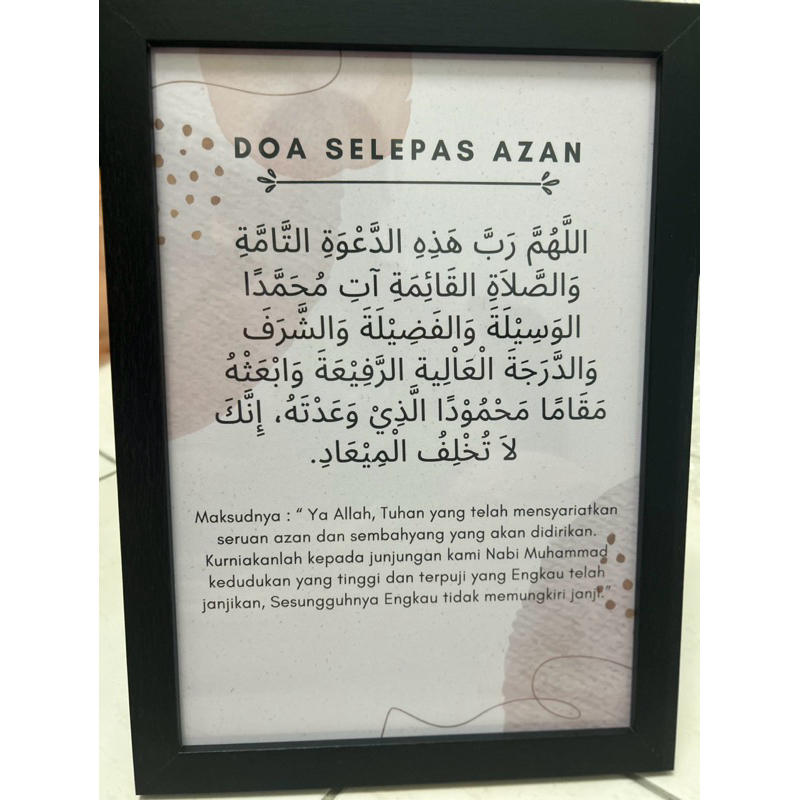 DOA SELEPAS AZAN
اللَّهُمَّ رَبَّ هَذِهِ الدَّعْوَةِ التَّامَّةِ
وَالصَّلاَةِ القَائِمَةِ آتِ مُحَمَّدًا
الوَسِيْلَةَ وَالفَضِيْلَةَ وَالشَّرَفَ
وَالدَّرَجَةَ الْعَالِية الرَّفِيْعَةَ وَابْعَثْهُ
مَقَامًا مَحْمُوْدًا الَّذِيْ وَعَدْتَهُ، إِنَّكَ
لاَ تُخْلِفُ الْمِيْعَادِ.
Maksudnya : “ Ya Allah, Tuhan yang telah mensyariatkan
seruan azan dan sembahyang yang akan didirikan.
Kurniakanlah kepada junjungan kami Nabi Muhammad
kedudukan yang tinggi dan terpuji yang Engkau telah
janjikan, Sesungguhnya Engkau tidak memungkiri janji.”